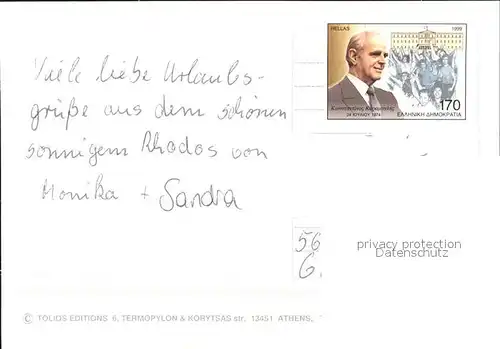 Viele liebe Urlaubs-
grüße aus dem schönen
sonnigem Rhodos von
Monika + Sandra
HELLAS 1999
Κωνσταντίνος Καραμανλής
24 ΙΟΥΛΙΟΥ 1974
170
ΕΛΛΗΝΙΚΗ ΔΗΜΟΚΡΑΤΙΑ
56
6.
privacy protection
Datenschutz
© TOLIDS EDITIONS 6, TERMOPYLON & KORYTSAS str. 13451 ATHENS,